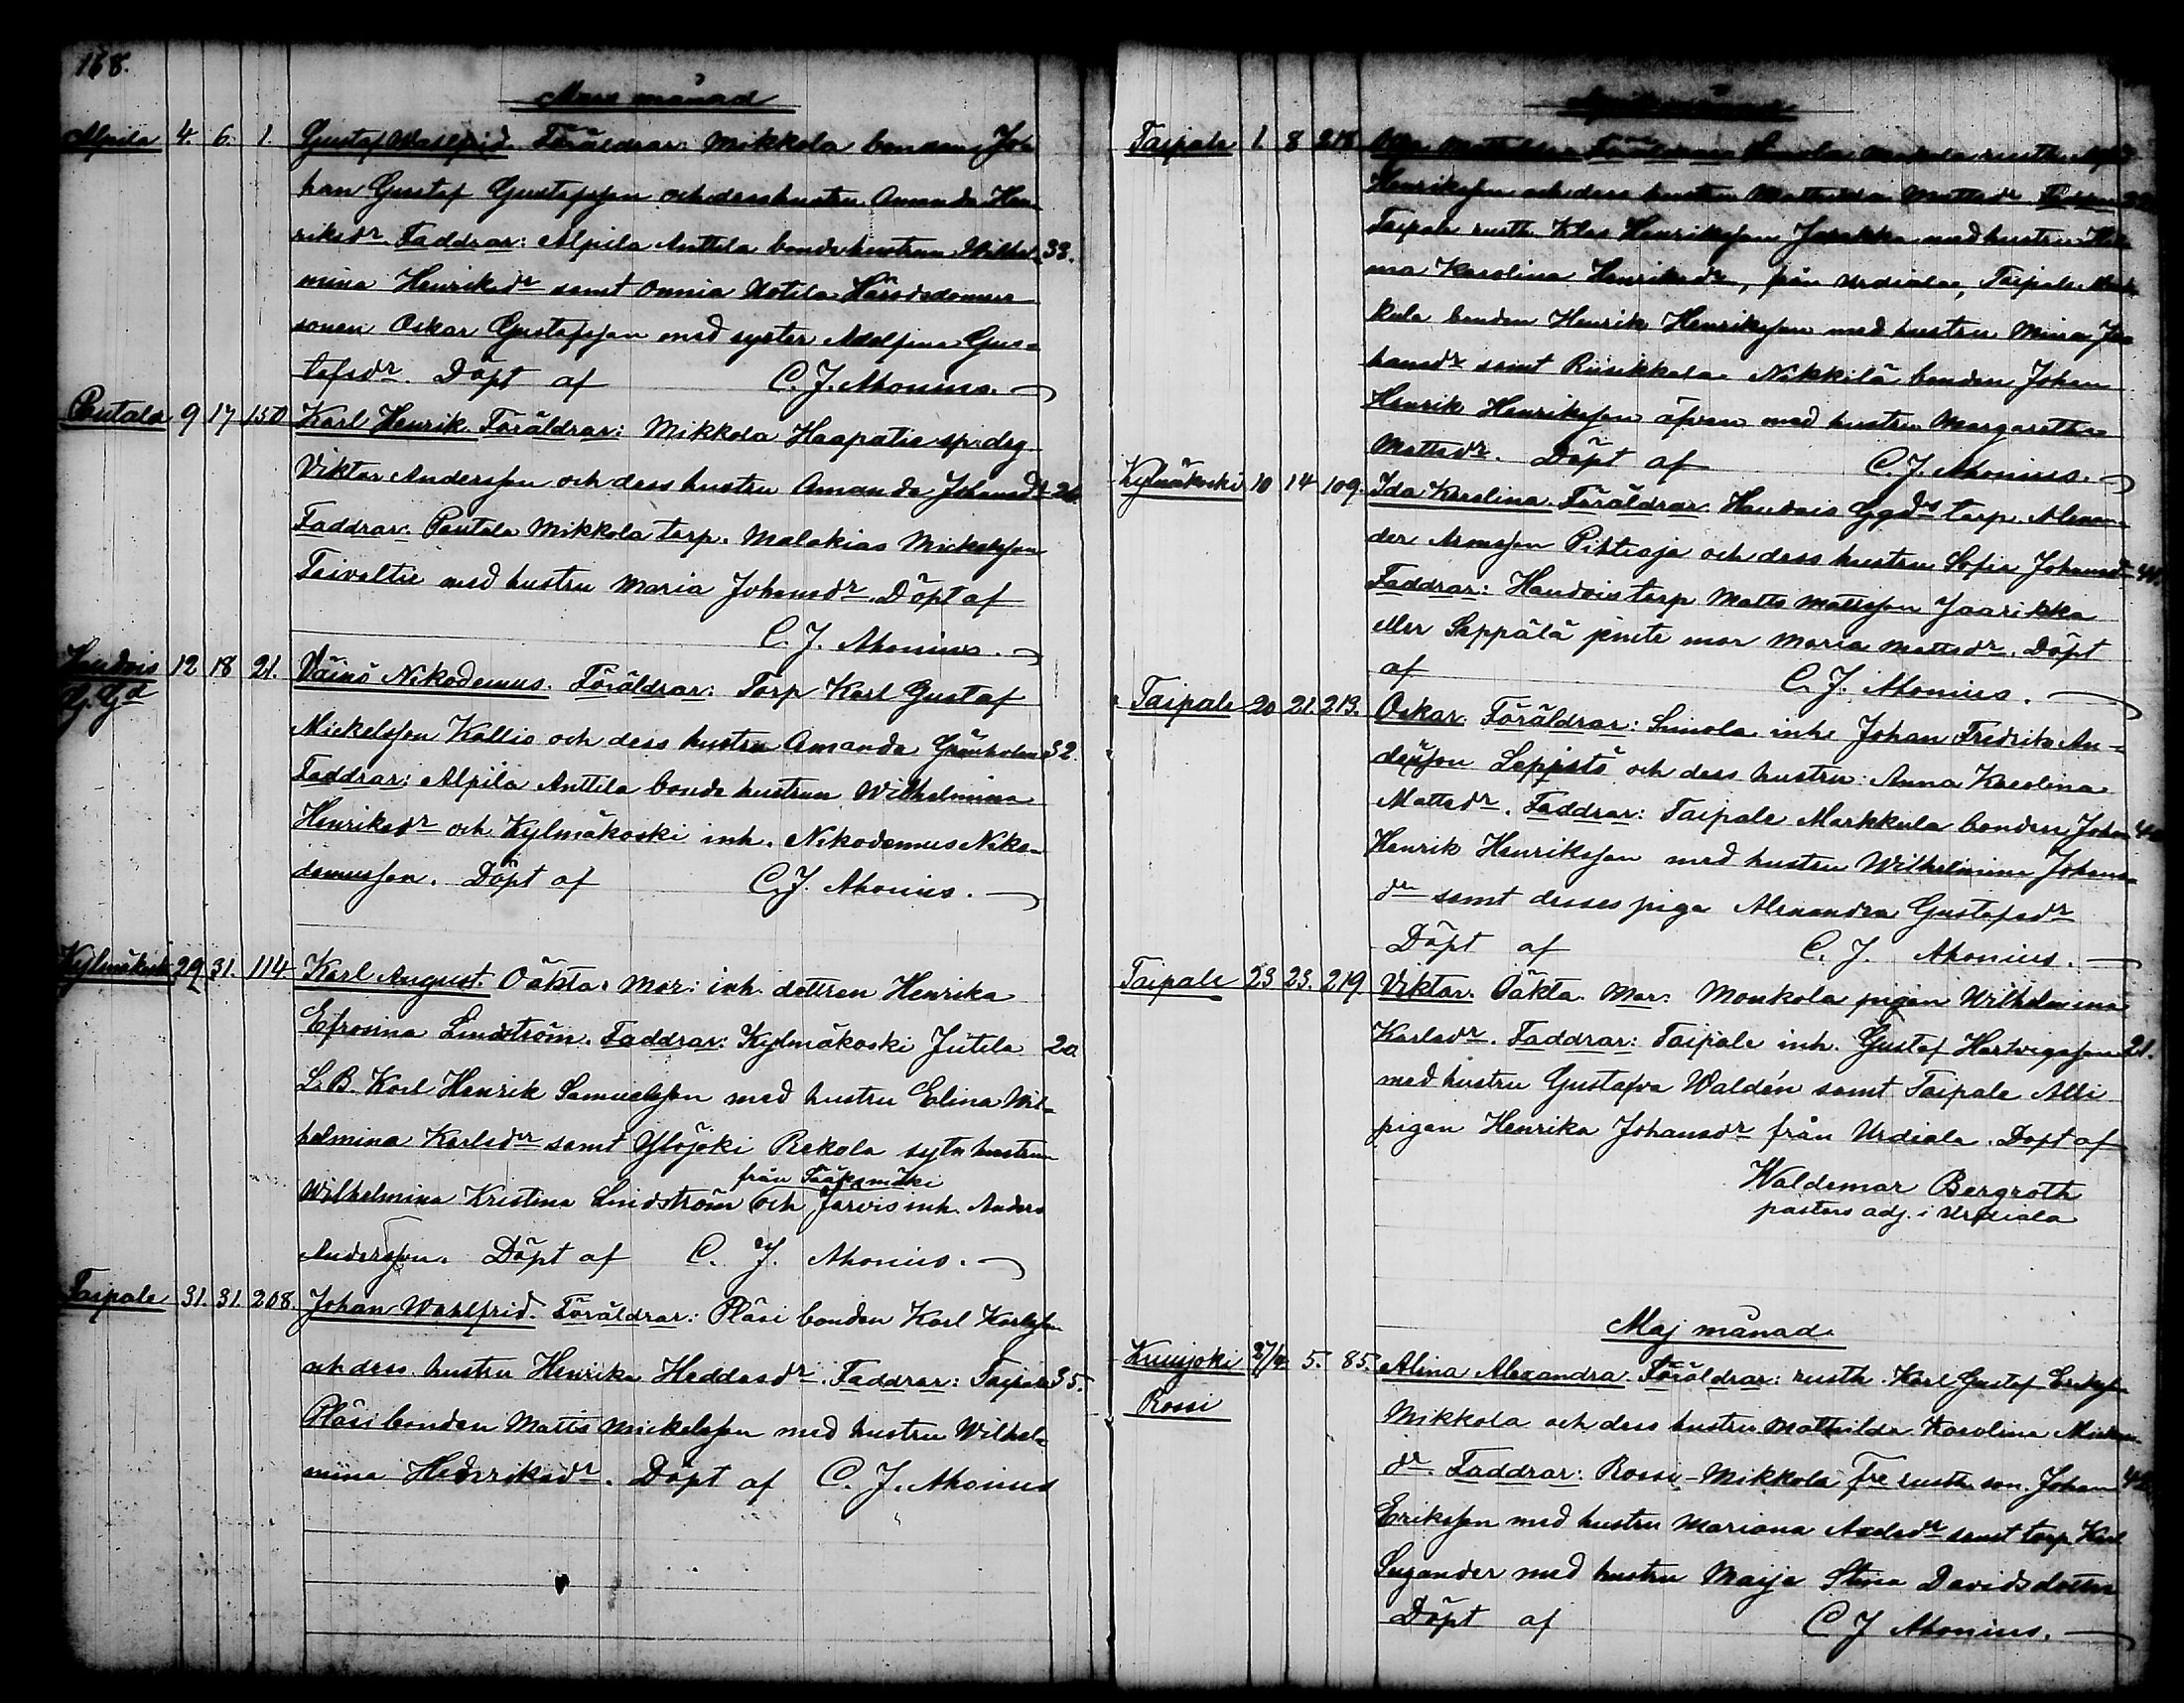 168.
Mars månad
Alpila 4. 6. 1. Gustaf Walfrid. Föräldrar: Mikkola bonden Jo
han Gustaf Gustafsson och dess hustru Amanda Hen
riksdr. Faddrar: Alpila Anttila bondehustrun Wilhel 33.
mina Henriksdr samt Onnia Uotila Häradsdomare
sonen Oskar Gustafsson med syster Adolfina Gus=
tafsdr. Döpt af C. J. Ahonius.
Pentala 9 17 150 Karl Henrik. Föräldrar: Mikkola Haapatie sp. drg
Viktor Andersson och dess hustru Amanda Johansdr 26.
Faddrar: Pentala Mikkola torp. Malakias Mickelsson
Taivaltie med hustru Maria Johansdr. Döpt af
C. J. Ahonius.
Handois 12 18 21. Väinö Nikodemus. Föräldrar: Torp Karl Gustaf
Gd
Mickelsson Kallio och dess hustru Amanda Grönholm 32.
Faddrar: Alpila Anttila bonde hustrun Wilhelmina
Henriksdr och Kylmäkoski inh. Nikodemus Niko=
demusson. Döpt af C. J. Ahonius.
Kylmäkoski 29 31. 114. Karl August. Oäkta. Mor: inh. dottren Henrika
Efrosina Lindström. Faddrar: Kylmäkoski Jutila 20
L. B. Karl Henrik Samuelsson med hustru Elina Wil=
helmina Karlsdr samt Ylöjoki Rekola sytn hustrun
från Sääksmäki
Wilhelmina Kristina Lindström och Jarvis inh. Anders
Andersson. Döpt af C. J. Ahonius.
Taipale 31. 31. 208. Johan Wahlfrid. Föräldrar: Pläsi bonden Karl Karlsson
och dess hustru Henrika Heddasdr. Faddrar: Taipale 35.
Pläsi bonden Matts Mickelsson med hustru Wilhel=
mina Hedriksdr. Döpt af C. J. Ahonius
Taipale 1 8 218 Föräldrar Simola
Henriksson och dess hustru Mathilda Mattsdr Faddrar
Taipale rusth. Klas Henriksson Jaakko med hustru
ma Karolina Henriksdr, från Urdiala, Taipale Mark
kula bonden Henrik Henriksson med hustru Mina Jo
hansdr samt Riisikkala Nikkilä bonden Johan
Henrik Henriksson äfven med hustru Margaretha
Mattsdr. Döpt af C. J. Ahonius.
Kylmäkoski 10 14 109. Ida Karolina. Föräldrar. Handois Ggds torp. Alexan
der Aronsson Pihtioja och dess hustru Sofia Johansdr
Faddrar: Handois torp Matts Mattsson Jaarikka
eller Seppälä jemte mor Maria Mattsdr. Döpt
af C. J. Ahonius.
Taipale 20 21. 213. Oskar. Föräldrar: Simola inh. Johan Fredrik An=
dersson Leppistö och dess hustru: Anna Karolina
Mattsdr. Faddrar: Taipale Markkula bonden Johan
Henrik Henriksson med hustru Wilhelmina Johans
dr samt desses piga Alexandra Gustafsdr
Döpt af C. J. Ahonius.
Taipale 23 23. 219. Viktor. Oäkta. Mor: Monkola pigan Wilhelmina
Karlsdr. Faddrar: Taipale inh. Gustaf Hartvigsson 21.
med hustru Gustafva Waldén samt Taipale Alli
pigan Henrika Johansdr från Urdiala. Döpt af
Waldemar Bergroth
pastors adj. i Urdiala
Maj månad.
Kurisjoki 27/4 5. 85. Alina Alexandra. Föräldrar: rusth. Karl Gustaf Eriksson
Rossi
Mikkola och dess hustru Mathilda Karolina
dr. Faddrar: Rossi-Mikkola fre rusth. son. Johan
Eriksson med hustru Mariana Axelsdr samt torp. Karl
Suzander med hustru Maija Stina Davidsdotter
Döpt af C J Ahonius.